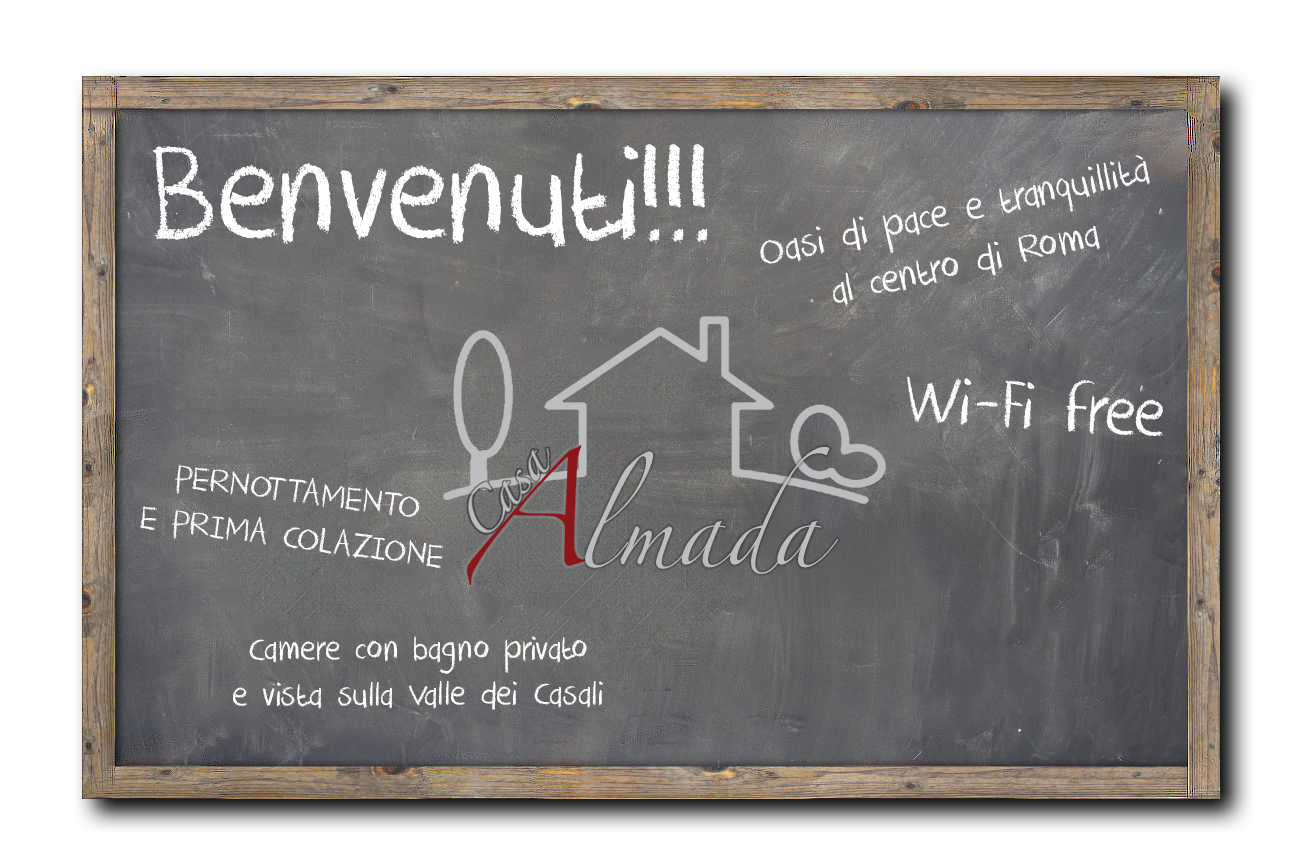 Benvenuti!!!
Oasi di pace e tranquillità
al centro di Roma
Wi-Fi free
Casa
Almada
PERNOTTAMENTO
E PRIMA COLAZIONE
Camere con bagno privato
e vista sulla Valle dei Casali